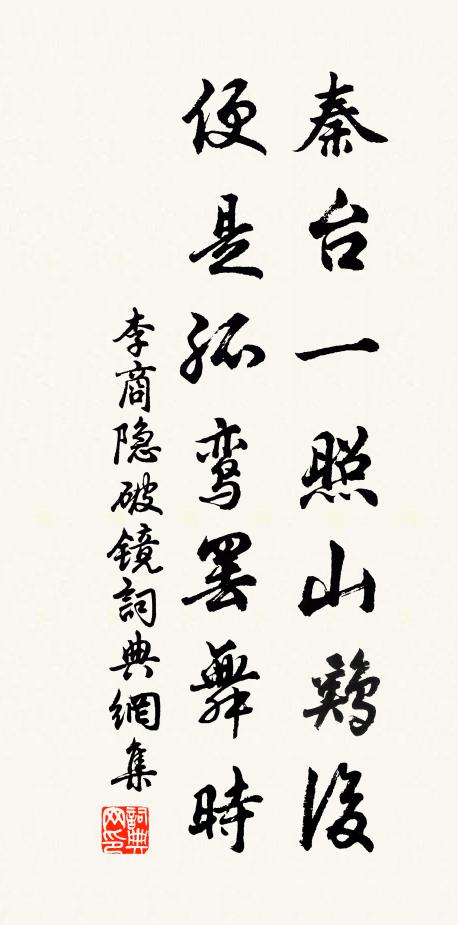 秦台一照山鷄後
便是孤鸾罢舞時
李商隐破镜詞典網集
詞典网印